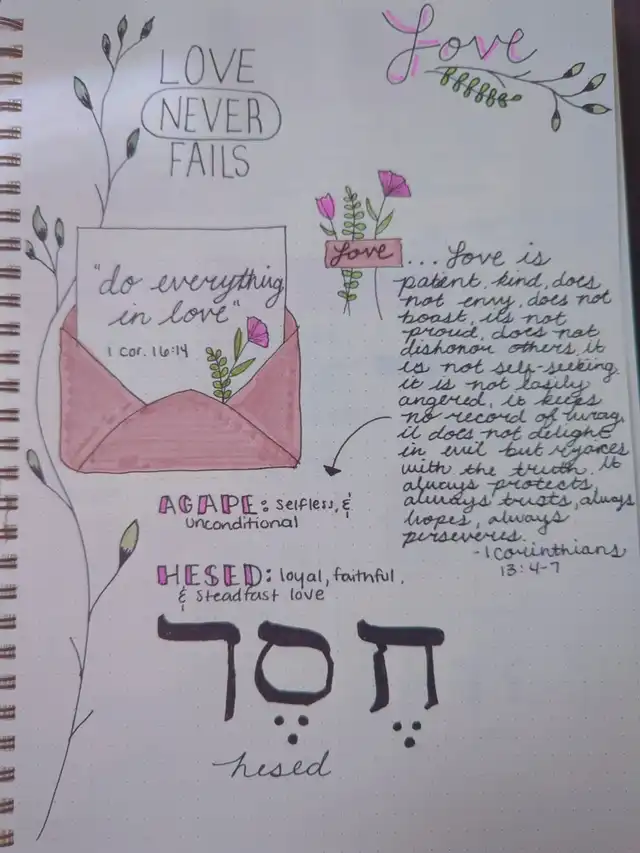 Love
LOVE
NEVER
FAILS
"do everything
in love"
1 Cor. 16:14
Love ... Love is
patient, kind, does
not envy, does not
boast, its not
proud, does not
dishonor others, it
is not self-seeking.
it is not easily
angered, it keeps
no record of wrong,
it does not delight
in evil but rejoices
with the truth. It
always protects,
always trusts, always
hopes, always
perseveres.
-1 Corinthians
13:4-7
AGAPE: selfless, &
unconditional
HESED: loyal, faithful,
& steadfast love
חֶסֶד
hesed